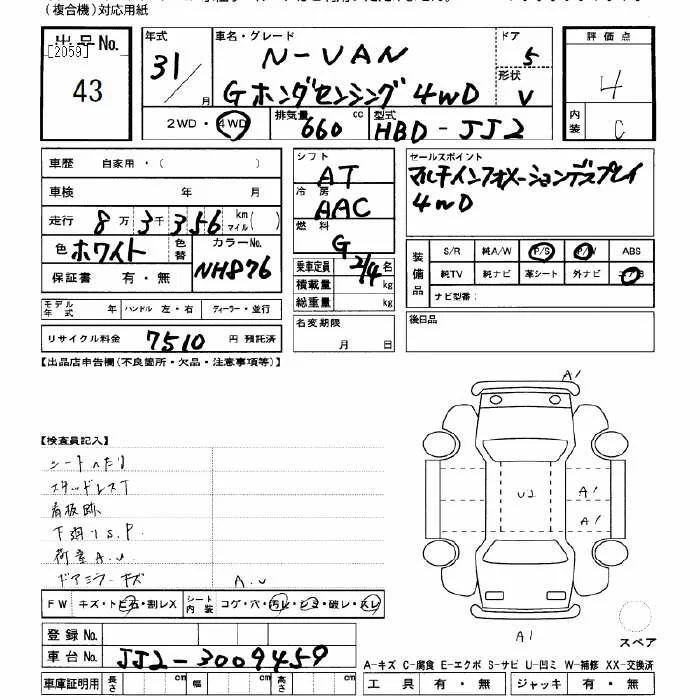 (複合機)対応用紙
出品No. [2059] 43
年式 31/ 月
車名・グレード N-VAN
Gホンダセンシング 4WD
ドア 5
形状 V
評価点 4
内装 C
2WD・4WD
排気量 660 cc
型式 HBD-JJ2
車歴 自家用・( )
車検 年 月
走行 8万3千356 km マイル( )
色 ホワイト 色替 カラーNo. NH876
保証書 有・無
シフト AT
冷房 AAC
燃料 G
乗車定員 2/4 名
積載量 kg
総重量 kg
セールスポイント
マルチインフォメーションディスプレイ
4WD
装備品 S/R 純A/W P/S P/W ABS
純TV 純ナビ 革シート 外ナビ エアB
ナビ型番:
モデル年式 年 ハンドル 左・右 ディーラー・並行
リサイクル料金 7510 円 預託済
名変期限 月 日
後日品
【出品店申告欄(不良箇所・欠品・注意事項等)】
【検査員記入】
シートヘたり
スタッドレスT
看板跡
下廻りS.P.
荷室A.U
ドアミラーキズ A.U
A1
U2
A1
A1
A1
スペア
FW キズ・トビ石・割レX シート内装 コゲ・穴・汚レ・シミ・破レ・スレ
登録No.
車台No. JJ2-3009459
車庫証明用 長さ cm 幅 cm 高さ cm
A-キズ C-腐食 E-エクボ S-サビ U-凹ミ W-補修 XX-交換済
工具 有・無 ジャッキ 有・無